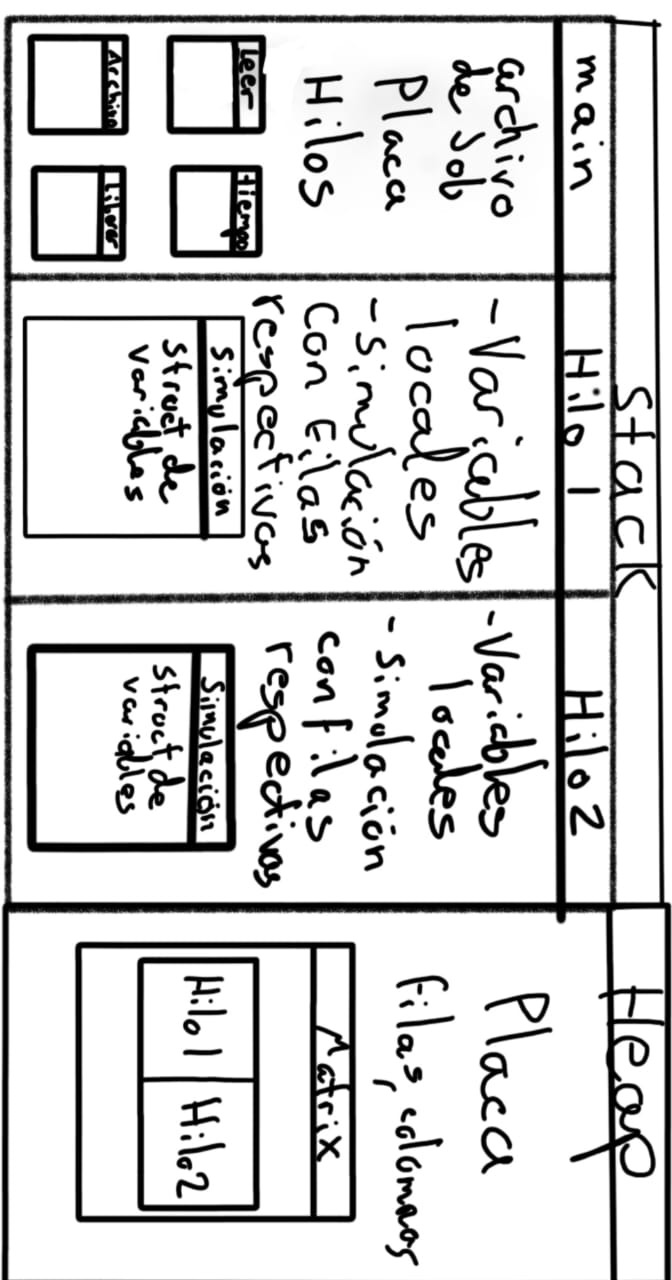 Stack
main
archivo
de Job
Placa
Hilos
Leer
Tiempo
Archivo
Liberar
Hilo 1
-Variables
locales
-Simulación
con filas
respectivas
Simulación
Struct de
variables
Hilo 2
-Variables
locales
-Simulación
con filas
respectivas
Simulación
Struct de
variables
Heap
Placa
Filas, columnas
Matrix
Hilo1 Hilo2